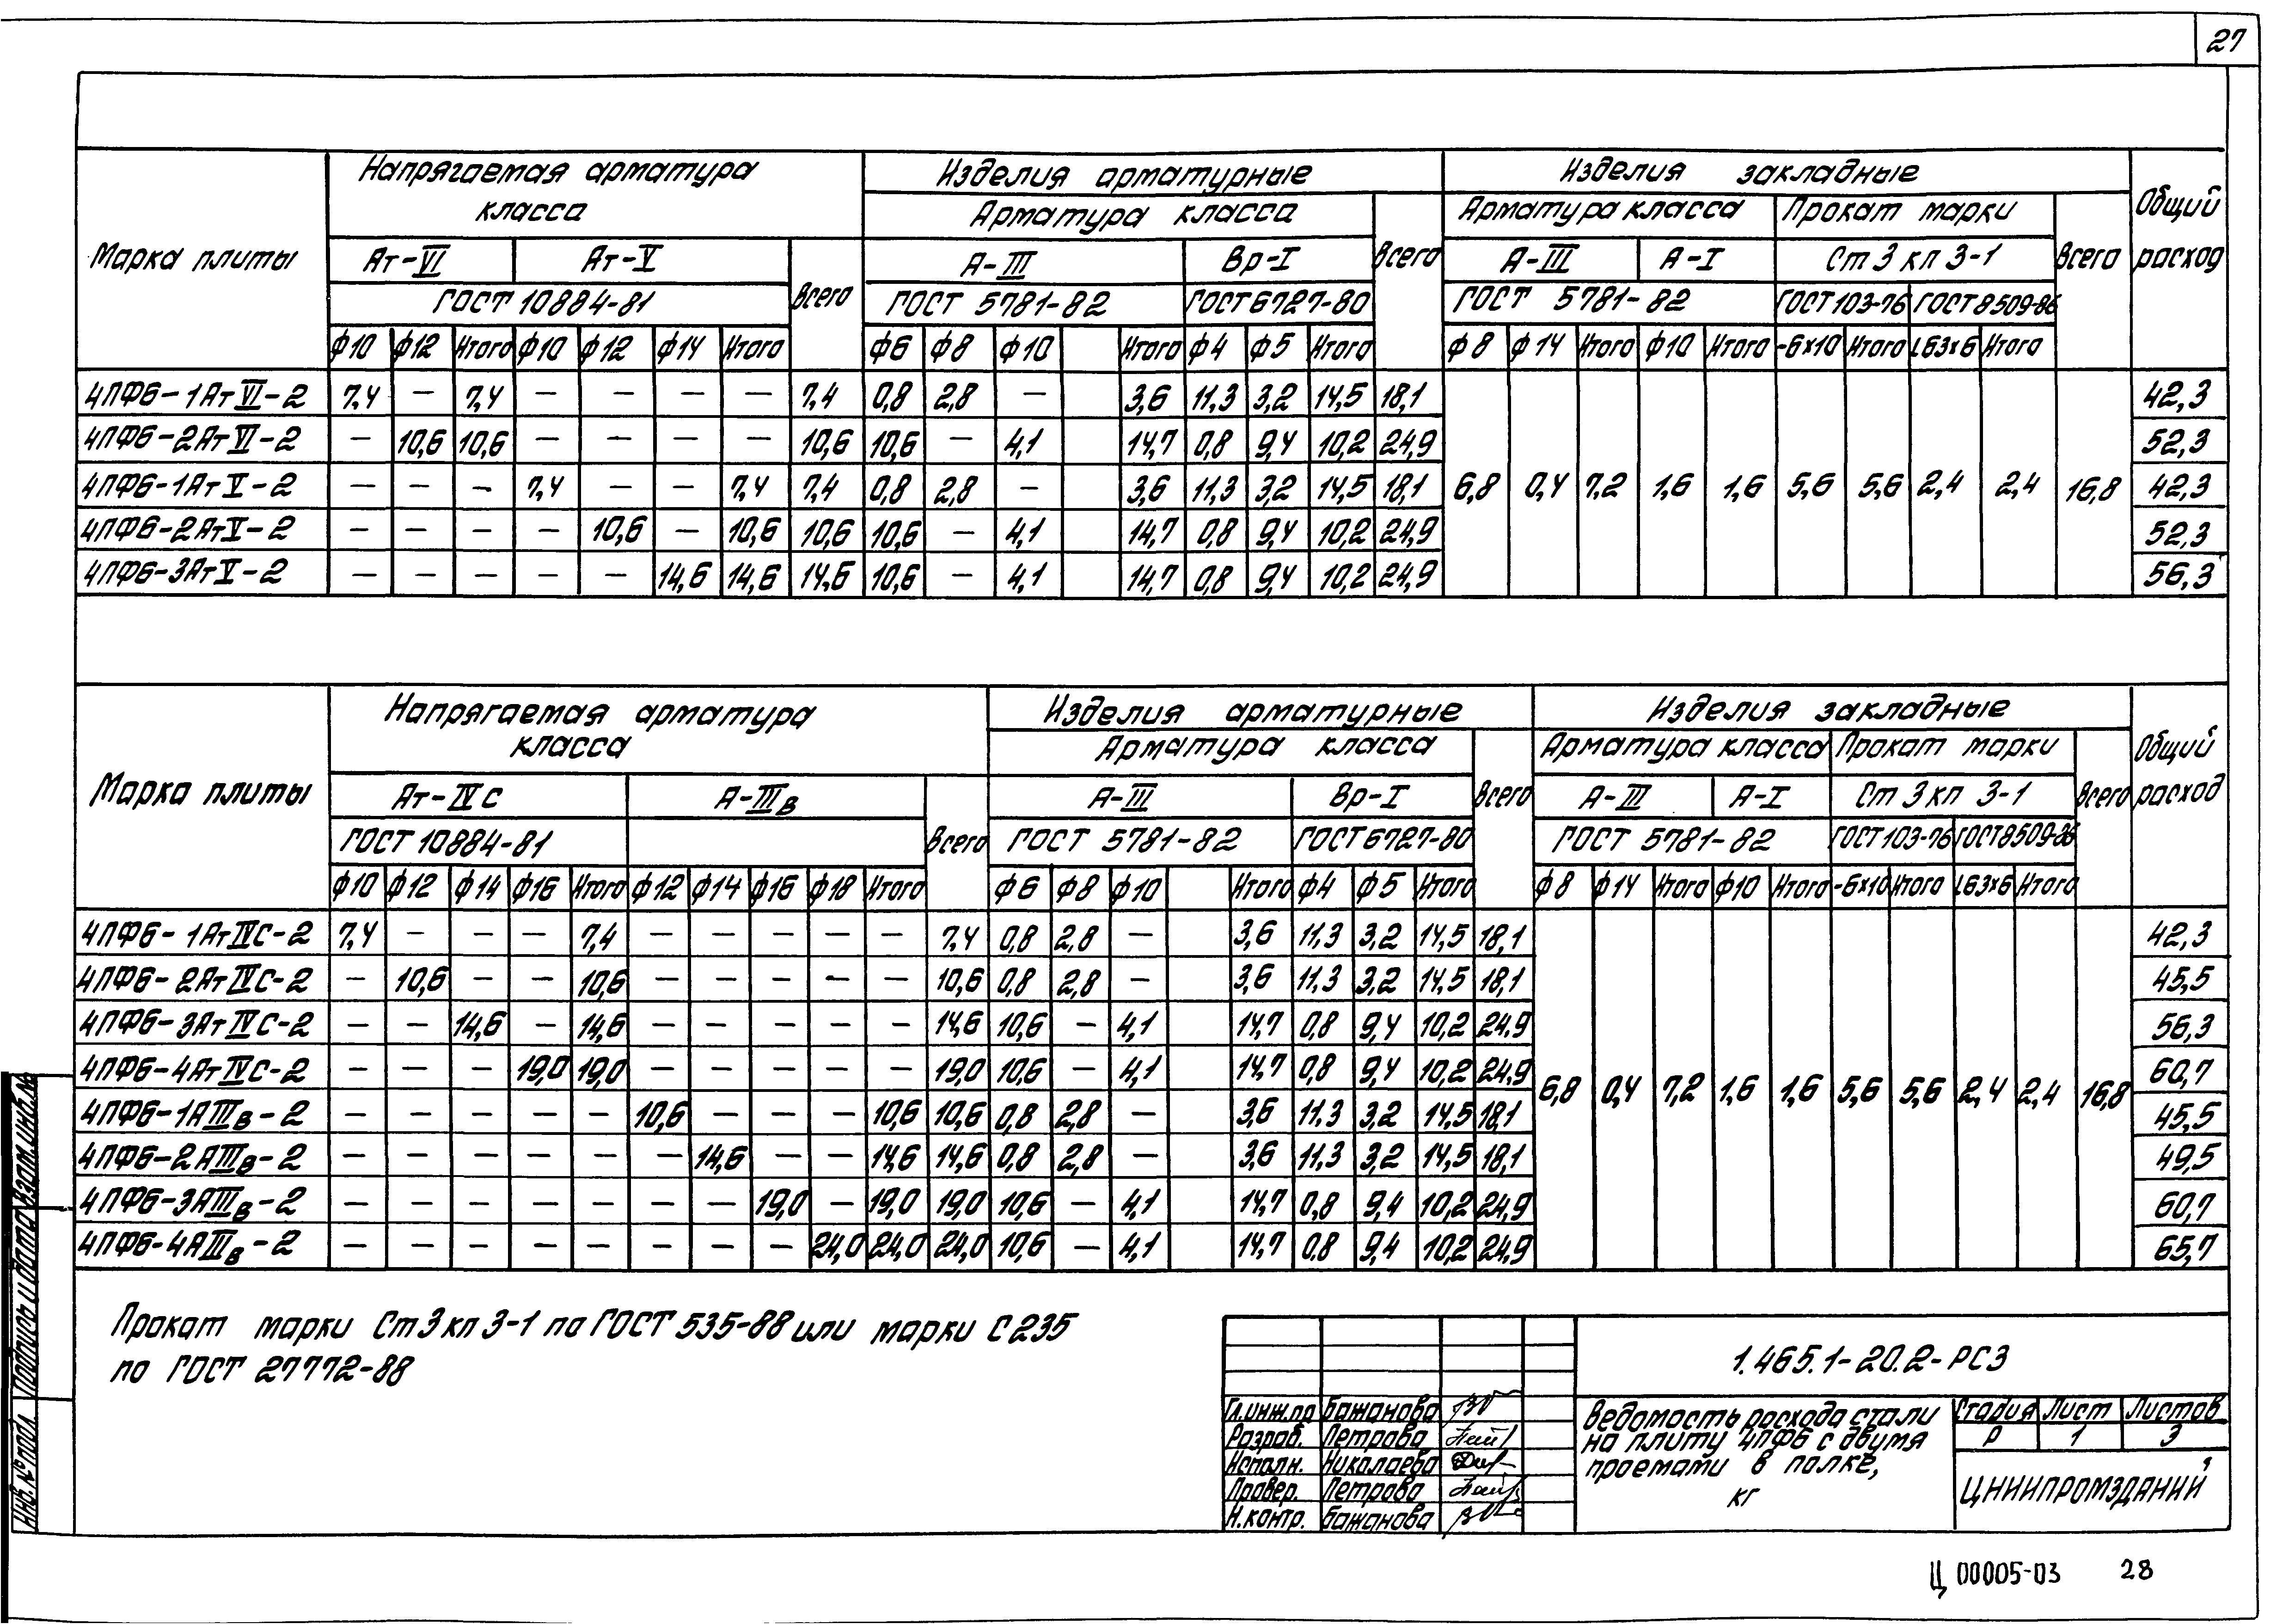 27
Марка плиты | Напрягаемая арматура класса | Изделия арматурные | Изделия закладные | Общий расход
Арматура класса | Всего | Арматура класса | Прокат марки | Всего
Ат-VI | Ат-V | Всего | А-III | Вр-I | А-III | А-I | Ст 3 кп 3-1
ГОСТ 10884-81 | ГОСТ 5781-82 | ГОСТ 6727-80 | ГОСТ 5781-82 | ГОСТ 103-76 | ГОСТ 8509-86
ф10 | ф12 | Итого | ф10 | ф12 | ф14 | Итого | ф6 | ф8 | ф10 | Итого | ф4 | ф5 | Итого | ф8 | ф14 | Итого | ф10 | Итого | -6×10 | Итого | L63×6 | Итого
4ПФ6-1АтVI-2 | 7,4 | — | 7,4 | — | — | — | — | 7,4 | 0,8 | 2,8 | — | 3,6 | 11,3 | 3,2 | 14,5 | 18,1 | 42,3
4ПФ6-2АтVI-2 | — | 10,6 | 10,6 | — | — | — | — | 10,6 | 10,6 | — | 4,1 | 14,7 | 0,8 | 9,4 | 10,2 | 24,9 | 52,3
4ПФ6-1АтV-2 | — | — | — | 7,4 | — | — | 7,4 | 7,4 | 0,8 | 2,8 | — | 3,6 | 11,3 | 3,2 | 14,5 | 18,1 | 6,8 | 0,4 | 7,2 | 1,6 | 1,6 | 5,6 | 5,6 | 2,4 | 2,4 | 16,8 | 42,3
4ПФ6-2АтV-2 | — | — | — | — | 10,6 | — | 10,6 | 10,6 | 10,6 | — | 4,1 | 14,7 | 0,8 | 9,4 | 10,2 | 24,9 | 52,3
4ПФ6-3АтV-2 | — | — | — | — | — | 14,6 | 14,6 | 14,6 | 10,6 | — | 4,1 | 14,7 | 0,8 | 9,4 | 10,2 | 24,9 | 56,3
Марка плиты | Напрягаемая арматура класса | Изделия арматурные | Изделия закладные | Общий расход
Арматура класса | Всего | Арматура класса | Прокат марки | Всего
Ат-IVС | А-IIIв | Всего | А-III | Вр-I | А-III | А-I | Ст 3 кп 3-1
ГОСТ 10884-81 | ГОСТ 5781-82 | ГОСТ 6727-80 | ГОСТ 5781-82 | ГОСТ 103-76 | ГОСТ 8509-86
ф10 | ф12 | ф14 | ф16 | Итого | ф12 | ф14 | ф16 | ф18 | Итого | ф6 | ф8 | ф10 | Итого | ф4 | ф5 | Итого | ф8 | ф14 | Итого | ф10 | Итого | -6×10 | Итого | L63×6 | Итого
4ПФ6-1АтIVС-2 | 7,4 | — | — | — | 7,4 | — | — | — | — | — | 7,4 | 0,8 | 2,8 | — | 3,6 | 11,3 | 3,2 | 14,5 | 18,1 | 42,3
4ПФ6-2АтIVС-2 | — | 10,6 | — | — | 10,6 | — | — | — | — | — | 10,6 | 0,8 | 2,8 | — | 3,6 | 11,3 | 3,2 | 14,5 | 18,1 | 45,5
4ПФ6-3АтIVС-2 | — | — | 14,6 | — | 14,6 | — | — | — | — | — | 14,6 | 10,6 | — | 4,1 | 14,7 | 0,8 | 9,4 | 10,2 | 24,9 | 56,3
4ПФ6-4АтIVС-2 | — | — | — | 19,0 | 19,0 | — | — | — | — | — | 19,0 | 10,6 | — | 4,1 | 14,7 | 0,8 | 9,4 | 10,2 | 24,9 | 6,8 | 0,4 | 7,2 | 1,6 | 1,6 | 5,6 | 5,6 | 2,4 | 2,4 | 16,8 | 60,7
4ПФ6-1АIIIв-2 | — | — | — | — | — | 10,6 | — | — | — | 10,6 | 10,6 | 0,8 | 2,8 | — | 3,6 | 11,3 | 3,2 | 14,5 | 18,1 | 45,5
4ПФ6-2АIIIв-2 | — | — | — | — | — | — | 14,6 | — | — | 14,6 | 14,6 | 0,8 | 2,8 | — | 3,6 | 11,3 | 3,2 | 14,5 | 18,1 | 49,5
4ПФ6-3АIIIв-2 | — | — | — | — | — | — | — | 19,0 | — | 19,0 | 19,0 | 10,6 | — | 4,1 | 14,7 | 0,8 | 9,4 | 10,2 | 24,9 | 60,7
4ПФ6-4АIIIв-2 | — | — | — | — | — | — | — | — | 24,0 | 24,0 | 24,0 | 10,6 | — | 4,1 | 14,7 | 0,8 | 9,4 | 10,2 | 24,9 | 65,7
Прокат марки Ст3кп3-1 по ГОСТ 535-88 или марки С235
по ГОСТ 27772-88
1.465.1-20.2-РС3
Гл.инж.пр Бажанова
Разраб. Петрова
Исполн. Николаева
Провер. Петрова
Н.контр. Бажанова
Ведомость расхода стали
на плиту 4ПФ6 с двумя
проемами в полке,
кг
Стадия Лист Листов
Р 1 3
ЦНИИПРОМЗДАНИЙ
Инв.№подл. Подпись и дата Взам.инв.№
Ц 00005-03 28